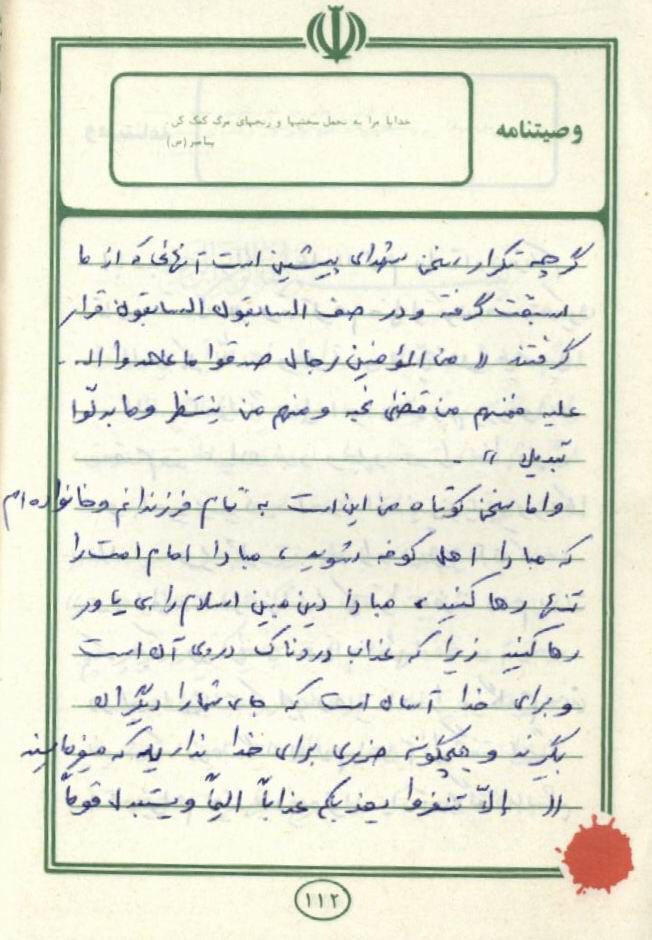 وصیتنامه
خدایا مرا به تحمل سختیها و رنجهای مرگ کمک کن
پیامبر (ص)
گرچه تکرار سخن شهدای پیشین است آنهائی که از ما
سبقت گرفته و در صف السابقون السابقون قرار
گرفتند « من المؤمنین رجال صدقوا ما عاهدوا الله
علیه فمنهم من قضی نحبه و منهم من ینتظر و ما بدلّوا
تبدیلا » .
و اما سخن کوتاه من این است به تمام فرزندانم و خانواده ام
که مبادا اهل کوفه بشوید ، مبادا امام امت را
تنها رها کنید ، مبادا دین مبین اسلام را بی یاور
رها کنید زیرا که عذاب دردناک در پی آن است
و برای خدا آسان است که جای شما را دیگران
بگیرند و هیچگونه ضرری برای خدا ندارد که میفرماید
« إلاّ تنفروا یعذبکم عذاباً الیماً و یستبدل قوماً
۱۱۲